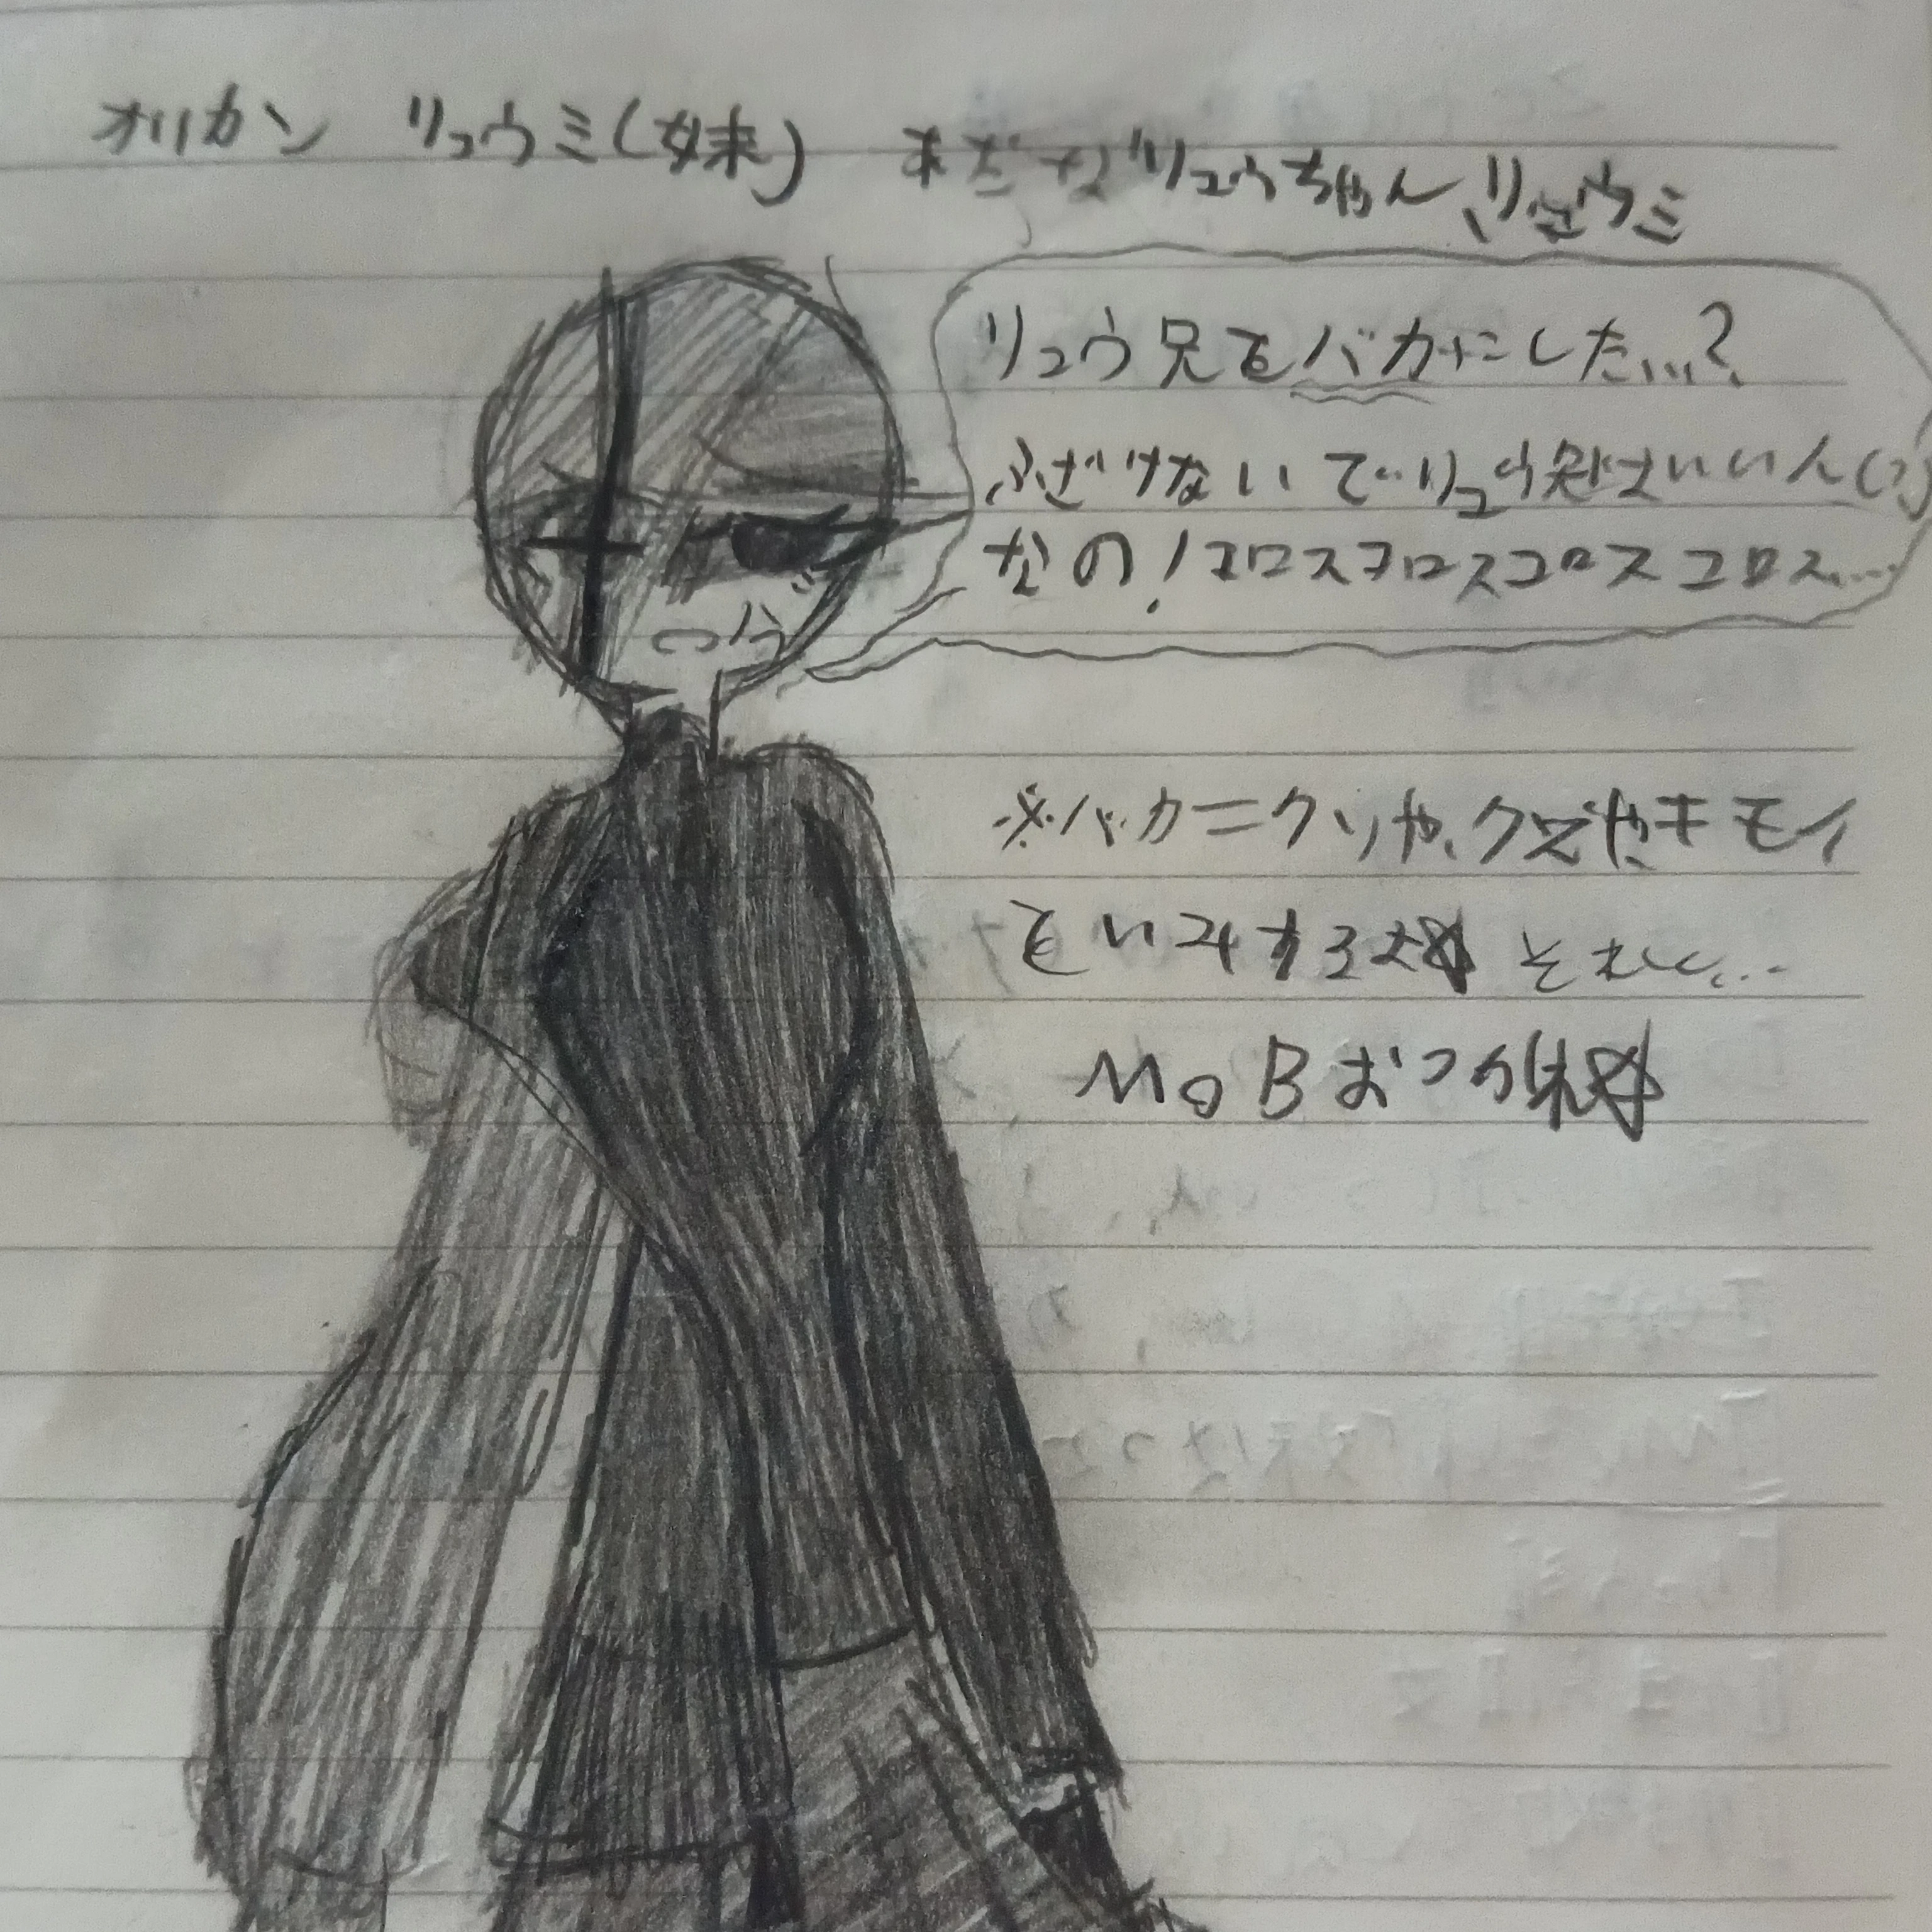 オリカン リュウミ(妹) あだなリュウちゃん、リュウミ
リュウ兄をバカにした...?
ふざけないでリュウ兄はいいん(?)
なの!コロスコロスコロスコロス...
※バカ=クソや、クズやキモイ
をいみするよ それ...
MOBおつか